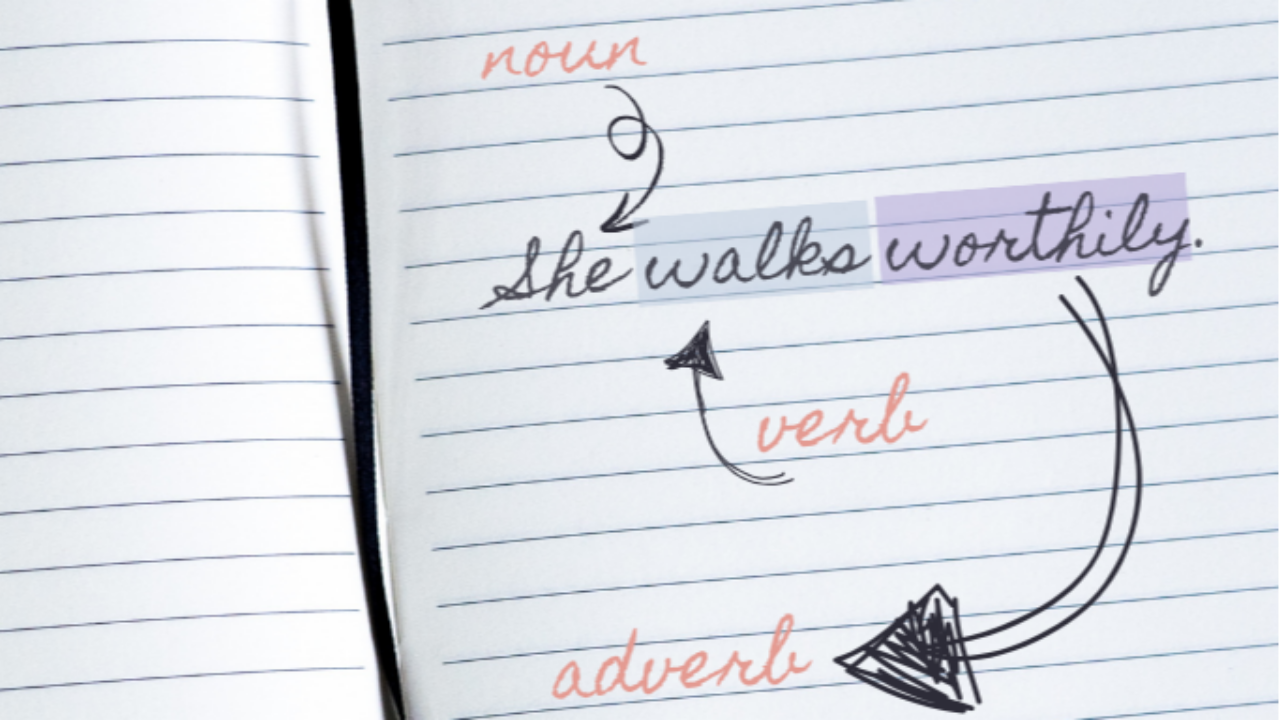 noun
She walks worthily.
verb
adverb